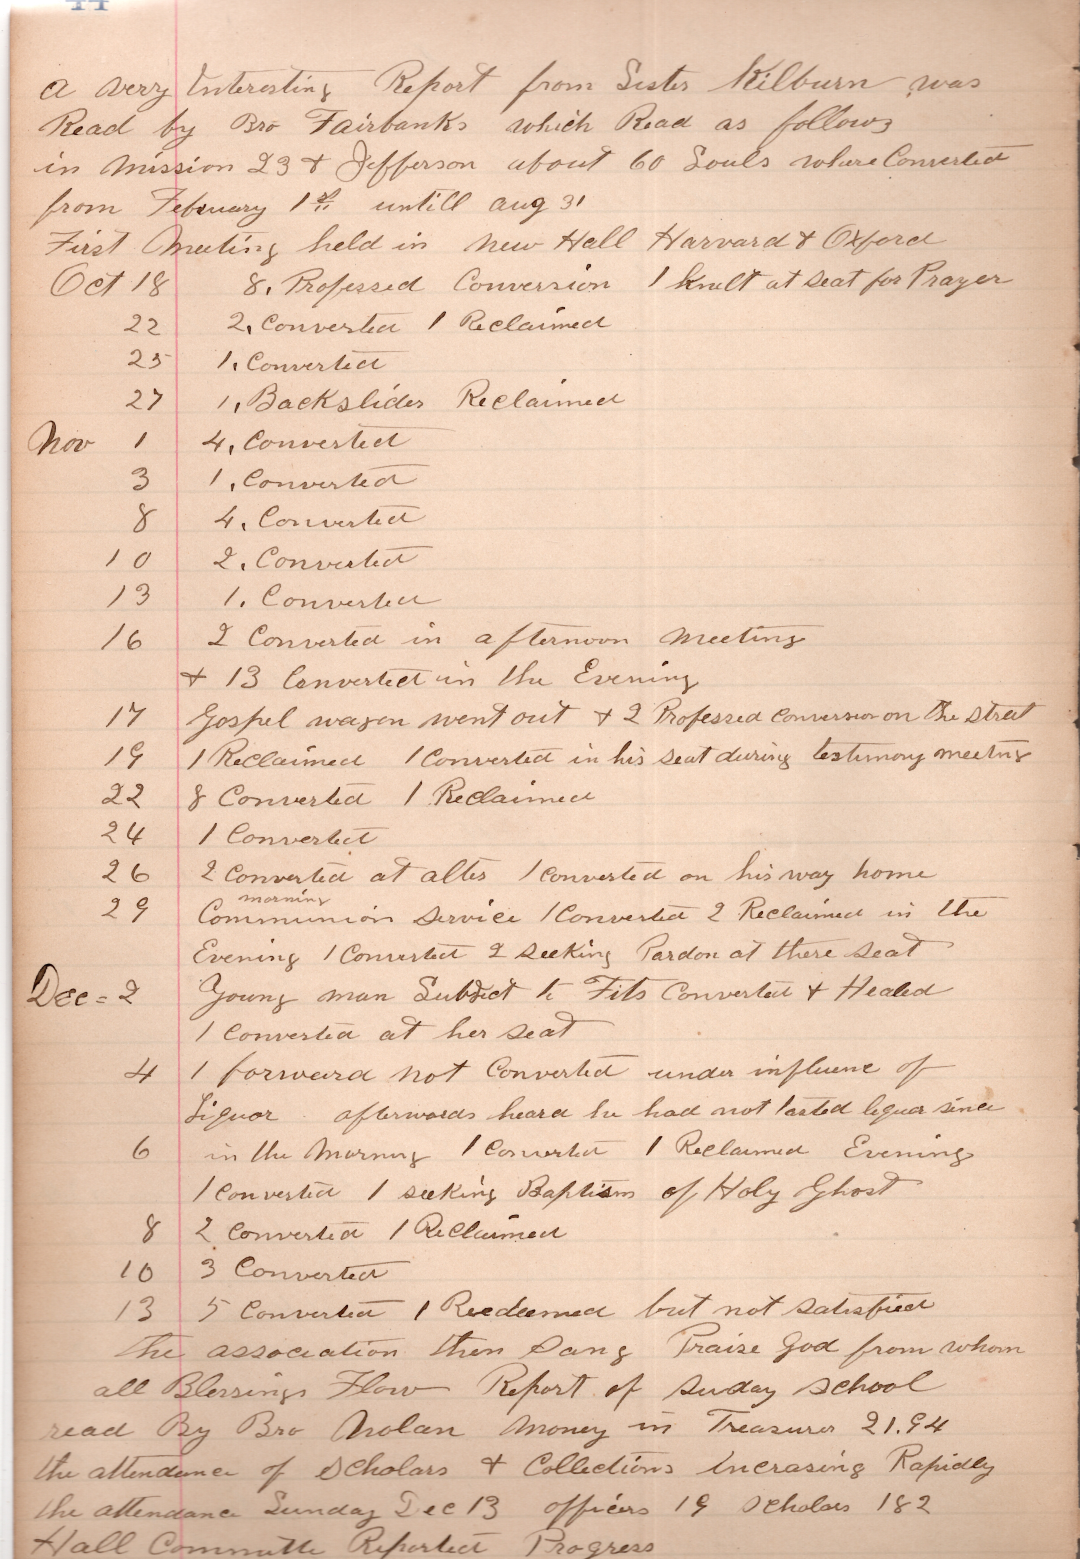 44
a very Interesting Report from Sister Kilburn was
Read by Bro Fairbanks which Read as follows
in mission 23 & Jefferson about 60 Souls where Converted
from February 1st untill aug 31
First Meeting held in new Hall Harvard & Oxford
Oct 18 8. Professed Conversion 1 knelt at seat for Prayer
22 2. Converted 1 Reclaimed
25 1. Converted
27 1. Backslider Reclaimed
Nov 1 4. Converted
3 1. Converted
8 4. Converted
10 2. Converted
13 1. Converted
16 2 Converted in afternoon meeting
& 13 Converted in the Evening
17 Gospel wagon went out & 2 Professed conversion on the street
19 1 Reclaimed 1 Converted in his seat during testimony meeting
22 8 Converted 1 Reclaimed
24 1 Converted
26 2 Converted at alter 1 converted on his way home
morning
29 Communion service 1 Converted 2 Reclaimed in the
Evening 1 Converted 2 seeking Pardon at there seat
Dec = 2 Young man Subject to Fits Converted & Healed
1 Converted at her seat
4 1 forward not Converted under influence of
Liquor afterwards heard he had not tasted liquor since
6 in the Morning 1 Converted 1 Reclaimed Evening
1 Converted 1 seeking Baptism of Holy Ghost
8 2 Converted 1 Reclaimed
10 3 Converted
13 5 Converted 1 Reedeemed but not satisfied
the association then Sang Praise God from whom
all Blessings Flow Report of suday school
read By Bro Nolan money in Treasurer 21.94
the attendance of Scholars & Collections incrasing Rapidly
the attendance Sunday Dec 13 officers 19 scholars 182
Hall Committe Reported Progress